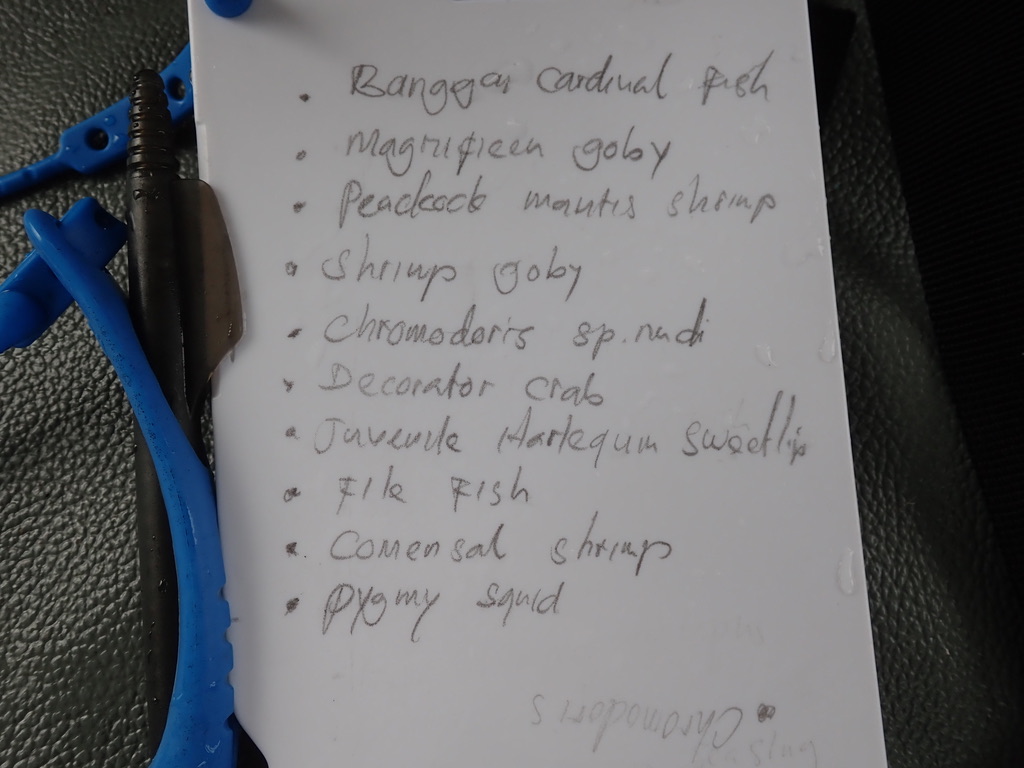 • Banggai Cardinal Fish
• Magnificen goby
• Peackock mantis shrimp
• Shrimp goby
• Chromodoris sp. nudi
• Decorator crab
• Juvenile Harlequin sweetlip
• File Fish
• Comensal shrimp
• Pygmy squid
• Chromodoris